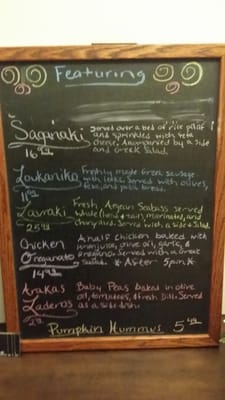 Featuring
Saginaki Served over a bed of rice pilaf
and sprinkled with feta
cheese. Accompanied by a side
16.95 and Greek Salad.
Loukaniko Freshly made Greek sausage
with leeks. Served with olives,
feta, and pita bread.
Lavraki Fresh, Aegean Seabass served
whole (head & tail), marinated, and
charbroiled. Served with a side & Salad.
Chicken A half chicken baked with
Oreganato lemon juice, olive oil, garlic, &
oregano. Served with a Greek
Salad. *After 5pm*
Arakas Baby Peas baked in olive
Laderos oil, tomatoes, & fresh Dill. Served
as a side dish.
Pumpkin Hummus 5